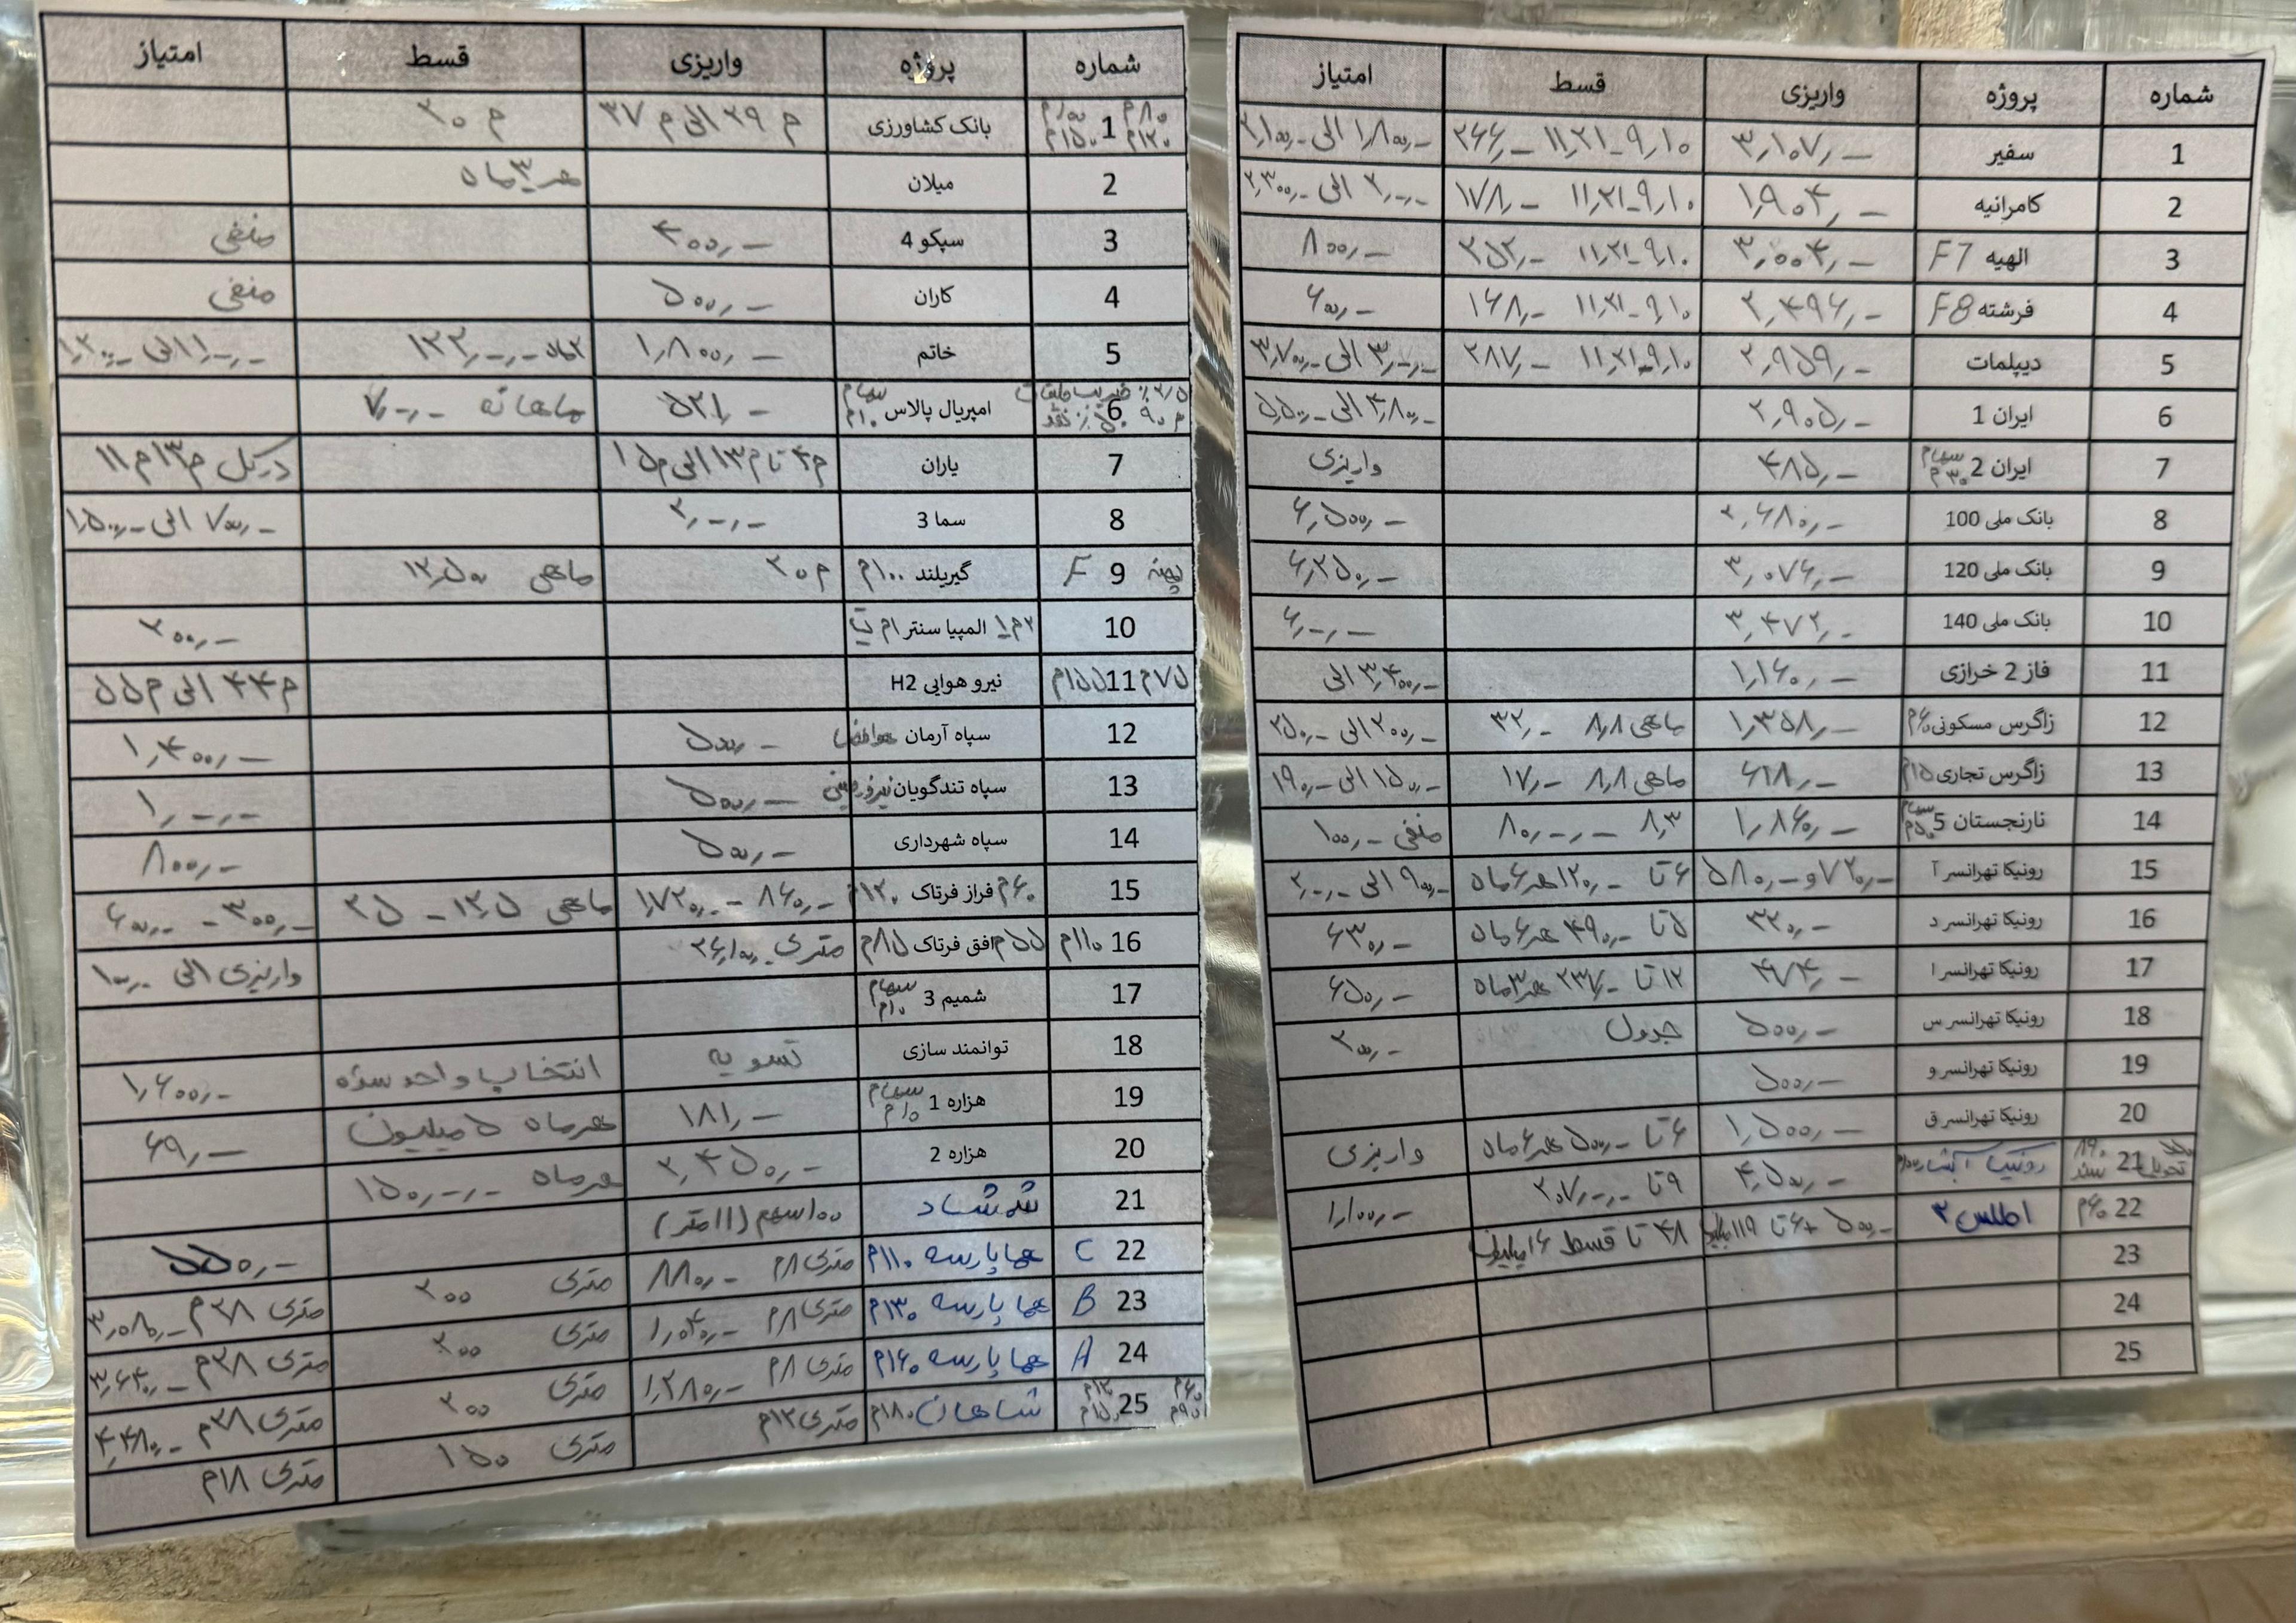 شماره پروژه واریزی قسط امتیاز
1 سفیر ۳٫۱۰۷٫ـ ۲۶۶٫ـ ۱۱٫۲۱ـ۹٫۱۰ ۱٫۸۰۰٫ـ الی ۲٫۱۰۰٫ـ
2 کامرانیه ۱٫۹۰۴٫ـ ۱۷۸٫ـ ۱۱٫۲۱ـ۹٫۱۰ ۲٫ـ٫ـ الی ۲٫۳۰۰٫ـ
3 الهیه F7 ۳٫۰۰۴٫ـ ۲۵۲٫ـ ۱۱٫۲۱ـ۹٫۱۰ ۸۰۰٫ـ
4 فرشته F8 ۲٫۴۹۶٫ـ ۱۶۸٫ـ ۱۱٫۲۱ـ۹٫۱۰ ۶۰۰٫ـ
5 دیپلمات ۲٫۹۵۹٫ـ ۲۸۷٫ـ ۱۱٫۲۱ـ۹٫۱۰ ۳٫ـ٫ـ الی ۳٫۷۰۰٫ـ
6 ایران 1 ۲٫۹۰۵٫ـ ۴٫۸۰۰٫ـ الی ۵٫۵۰۰٫ـ
7 ایران 2 سهام ۳۰م ۴۸۵٫ـ واریزی
8 بانک ملی 100 ۲٫۶۸۰٫ـ ۶٫۵۰۰٫ـ
9 بانک ملی 120 ۳٫۰۷۶٫ـ ۶٫۲۵۰٫ـ
10 بانک ملی 140 ۳٫۴۷۲٫ـ ۶٫ـ٫ـ
11 فاز 2 خرازی ۱٫۱۶۰٫ـ ۳٫۴۰۰٫ـ الی
12 زاگرس مسکونی ۶۰م ۱٫۳۵۸٫ـ ماهی ۸٫۸ ۳۲٫ـ ۲۰۰٫ـ الی ۲۵۰٫ـ
13 زاگرس تجاری ۱۵م ۶۱۸٫ـ ماهی ۸٫۸ ۱۷٫ـ ۱۵۰٫ـ الی ۱۹۰٫ـ
14 نارنجستان 5 سهام ۵۰م ۱٫۸۶۰٫ـ ۸٫۳ ۸۰٫ـ٫ـ منفی ۱۰۰٫ـ
15 رونیکا تهرانسر آ ۷۲۰٫ـ و ۵۸۰٫ـ ۶ تا ۱۲۰٫ـ هر ۶ ماه ۹۰۰٫ـ الی ۲٫ـ٫ـ
16 رونیکا تهرانسر د ۳۲۰٫ـ ۵ تا ۴۹۰٫ـ هر ۶ ماه ۶۳۰٫ـ
17 رونیکا تهرانسر ا ۴۷۴٫ـ ۱۲ تا ۲۳۷٫ـ هر ۳ ماه ۶۵۰٫ـ
18 رونیکا تهرانسر س ۵۰۰٫ـ جدول ۲۰۰٫ـ
19 رونیکا تهرانسر و ۵۰۰٫ـ
20 رونیکا تهرانسر ق ۱٫۵۰۰٫ـ ۶ تا ۵۰۰٫ـ هر ۶ ماه واریزی
21 تحویل سند رونیکا آبشار ۴٫۵۰۰٫ـ ۹ تا ۲۰۷٫ـ٫ـ ۱٫۱۰۰٫ـ
22 ۶۰م اطلس ۲ ۵۰۰٫ـ + ۶ تا ۱۱۹ میلیون ۴۸ تا قسط ۱۶ میلیون
23
24
25
شماره پروژه واریزی قسط امتیاز
1 ۸۰م ۱۰۰م ۱۲۰م ۱۵۰م بانک کشاورزی ۲۹م الی ۳۷م ۲۰م
2 میلان هر ۳ ماه
3 سپکو 4 ۴۰۰٫ـ منفی
4 کاران ۵۰۰٫ـ منفی
5 خاتم ۱٫۸۰۰٫ـ ۲ماه ۱۳۳٫ـ٫ـ ۱٫ـ٫ـ الی ۱٫۲۰۰٫ـ
6 امپریال پالاس سهام ۱۰م ۵۲۱٫ـ ماهانه ۷٫ـ٫ـ
7 یاران ۴م تا ۱۳م الی ۱۵م درکل ۱۳م ۱۱م
8 سما 3 ۲٫ـ٫ـ ۷۰۰٫ـ الی ۱٫۵۰۰٫ـ
9 پهنه F گیریلند ۱۰۰م ۲۰م ماهی ۱۲٫۵۰۰
10 المپیا سنتر ۲۰۰٫ـ
11 ۷۵م ۱۵۵م نیرو هوایی H2 ۴۴م الی ۵۵م
12 سپاه آرمان هوافضا ۵۰۰٫ـ ۱٫۴۰۰٫ـ
13 سپاه تندگویان نیروزمینی ۵۰۰٫ـ ۱٫ـ٫ـ
14 سپاه شهرداری ۵۰۰٫ـ ۸۰۰٫ـ
15 ۶۰م فراز فرتاک ۱۲۰م ۸۶۰٫ـ ـ ۱٫۷۲۰٫ـ ماهی ۱۲٫۵ ـ ۲۵ ۳۰۰٫ـ ـ ۶۰۰٫ـ
16 ۱۱۰م ۵۵م افق فرتاک ۸۵م متری ۲۶٫۱۰۰٫ـ واریزی الی ۱۰۰٫ـ
17 شمیم 3 سهام ۱۰م
18 توانمند سازی تسویه انتخاب واحد شده ۱٫۶۰۰٫ـ
19 هزاره 1 سهام ۱۰م ۱۸۱٫ـ هرماه ۵ میلیون ۶۹٫ـ
20 هزاره 2 ۲٫۴۵۰٫ـ هرماه ۱۵۰٫ـ٫ـ
21 شمشاد ۱۰۰ سهم (۱۱ متر) ۵۵۰٫ـ
22 C هما پارسه ۱۱۰م متری ۸م ۸۸۰٫ـ متری ۲۰۰ متری ۲۸م ۳٫۰۸۰٫ـ
23 B هما پارسه ۱۳۰م متری ۸م ۱٫۰۴۰٫ـ متری ۲۰۰ متری ۲۸م ۳٫۶۴۰٫ـ
24 A هما پارسه ۱۶۰م متری ۸م ۱٫۲۸۰٫ـ متری ۲۰۰ متری ۲۸م ۴٫۴۸۰٫ـ
25 ۶۰م ۹۰م ۱۲۰م ۱۵۰م شاهان ۱۸۰م متری ۱۲م متری ۱۵۰ متری ۱۸م